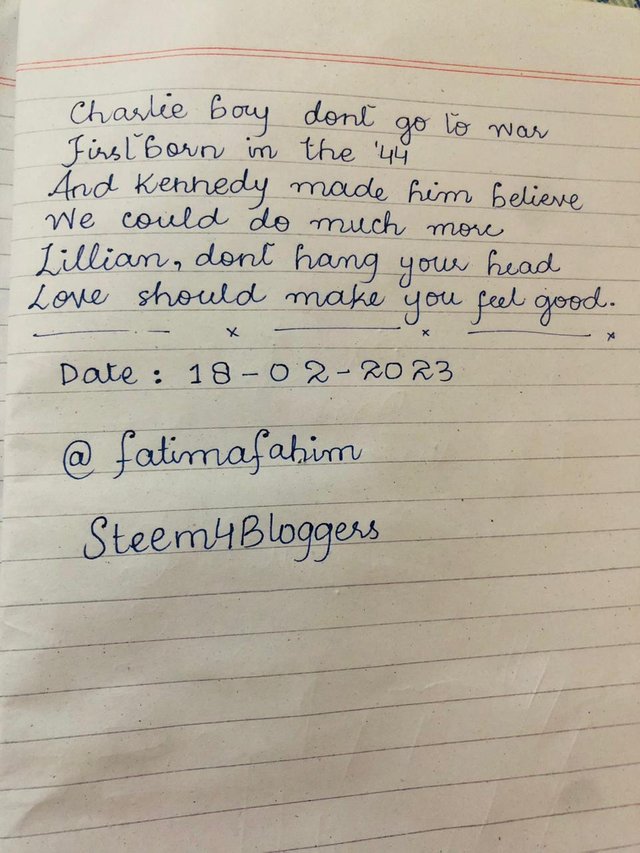 Charlie boy dont go to war
First born in the '44
And Kennedy made him believe
We could do much more
Lillian, dont hang your head
Love should make you feel good.
Date : 18-02-2023
@ fatimafahim
Steem4Bloggers